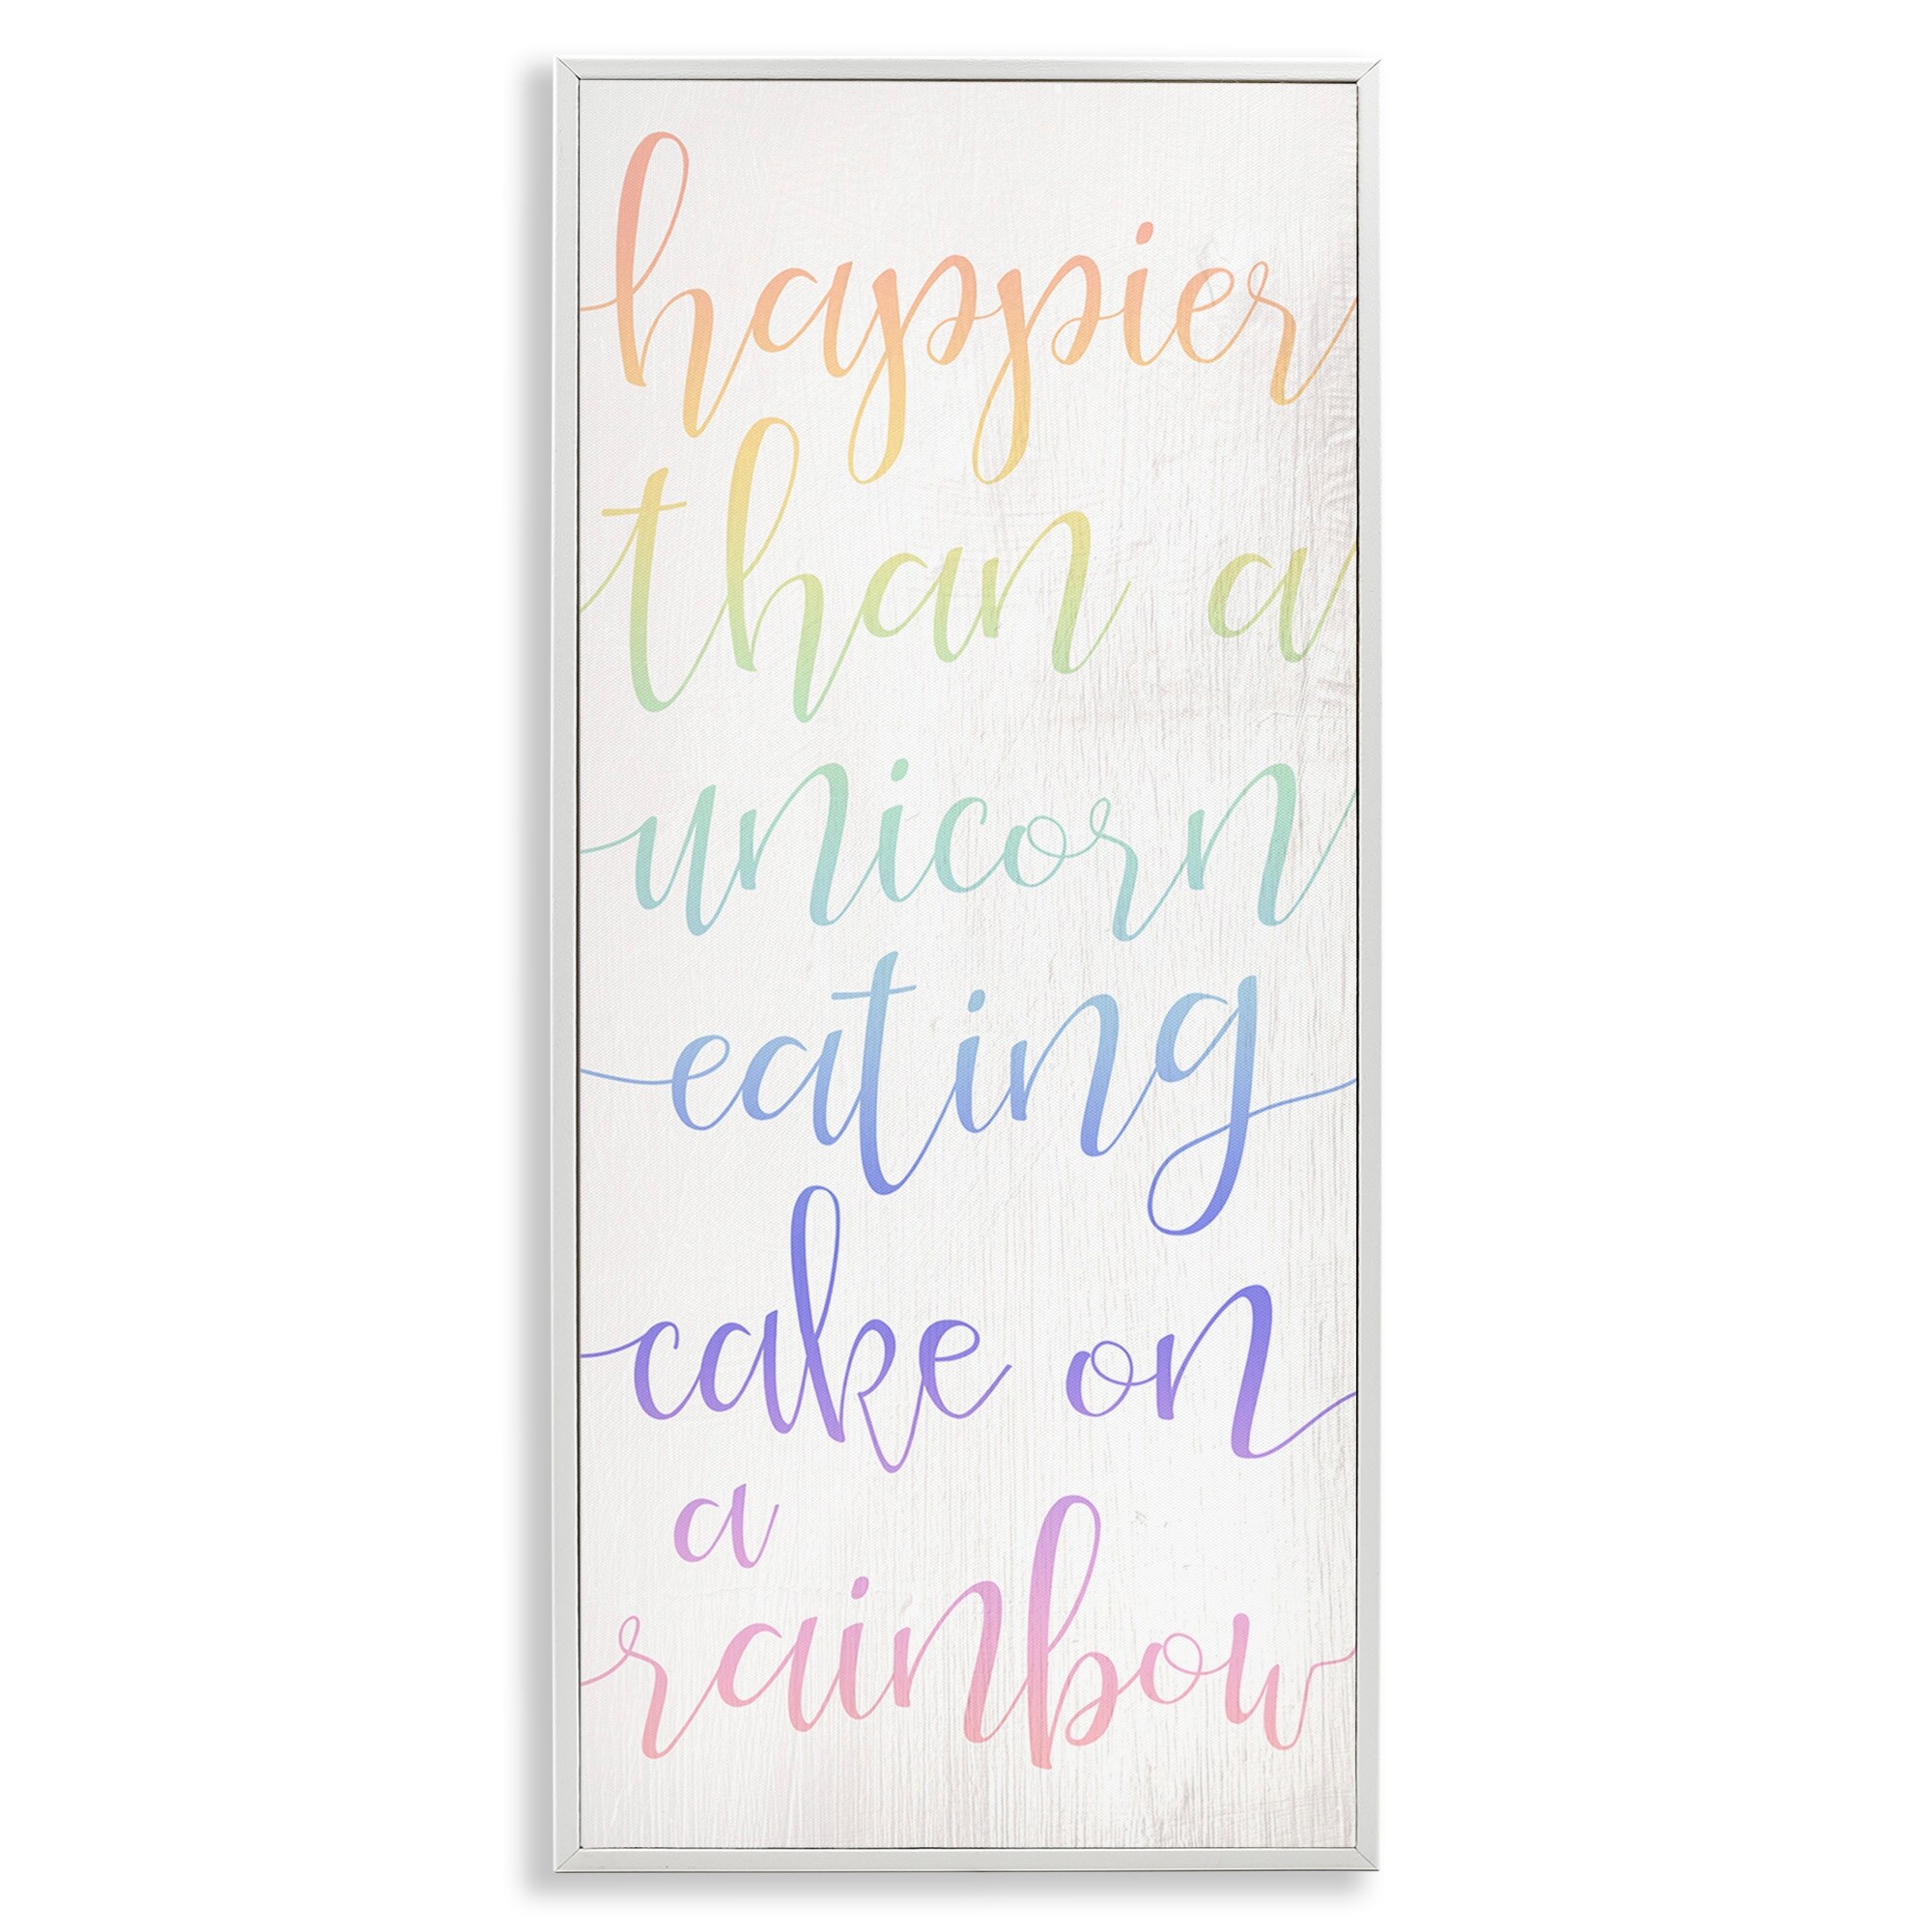 happier
than a
unicorn
eating
cake on
a
rainbow